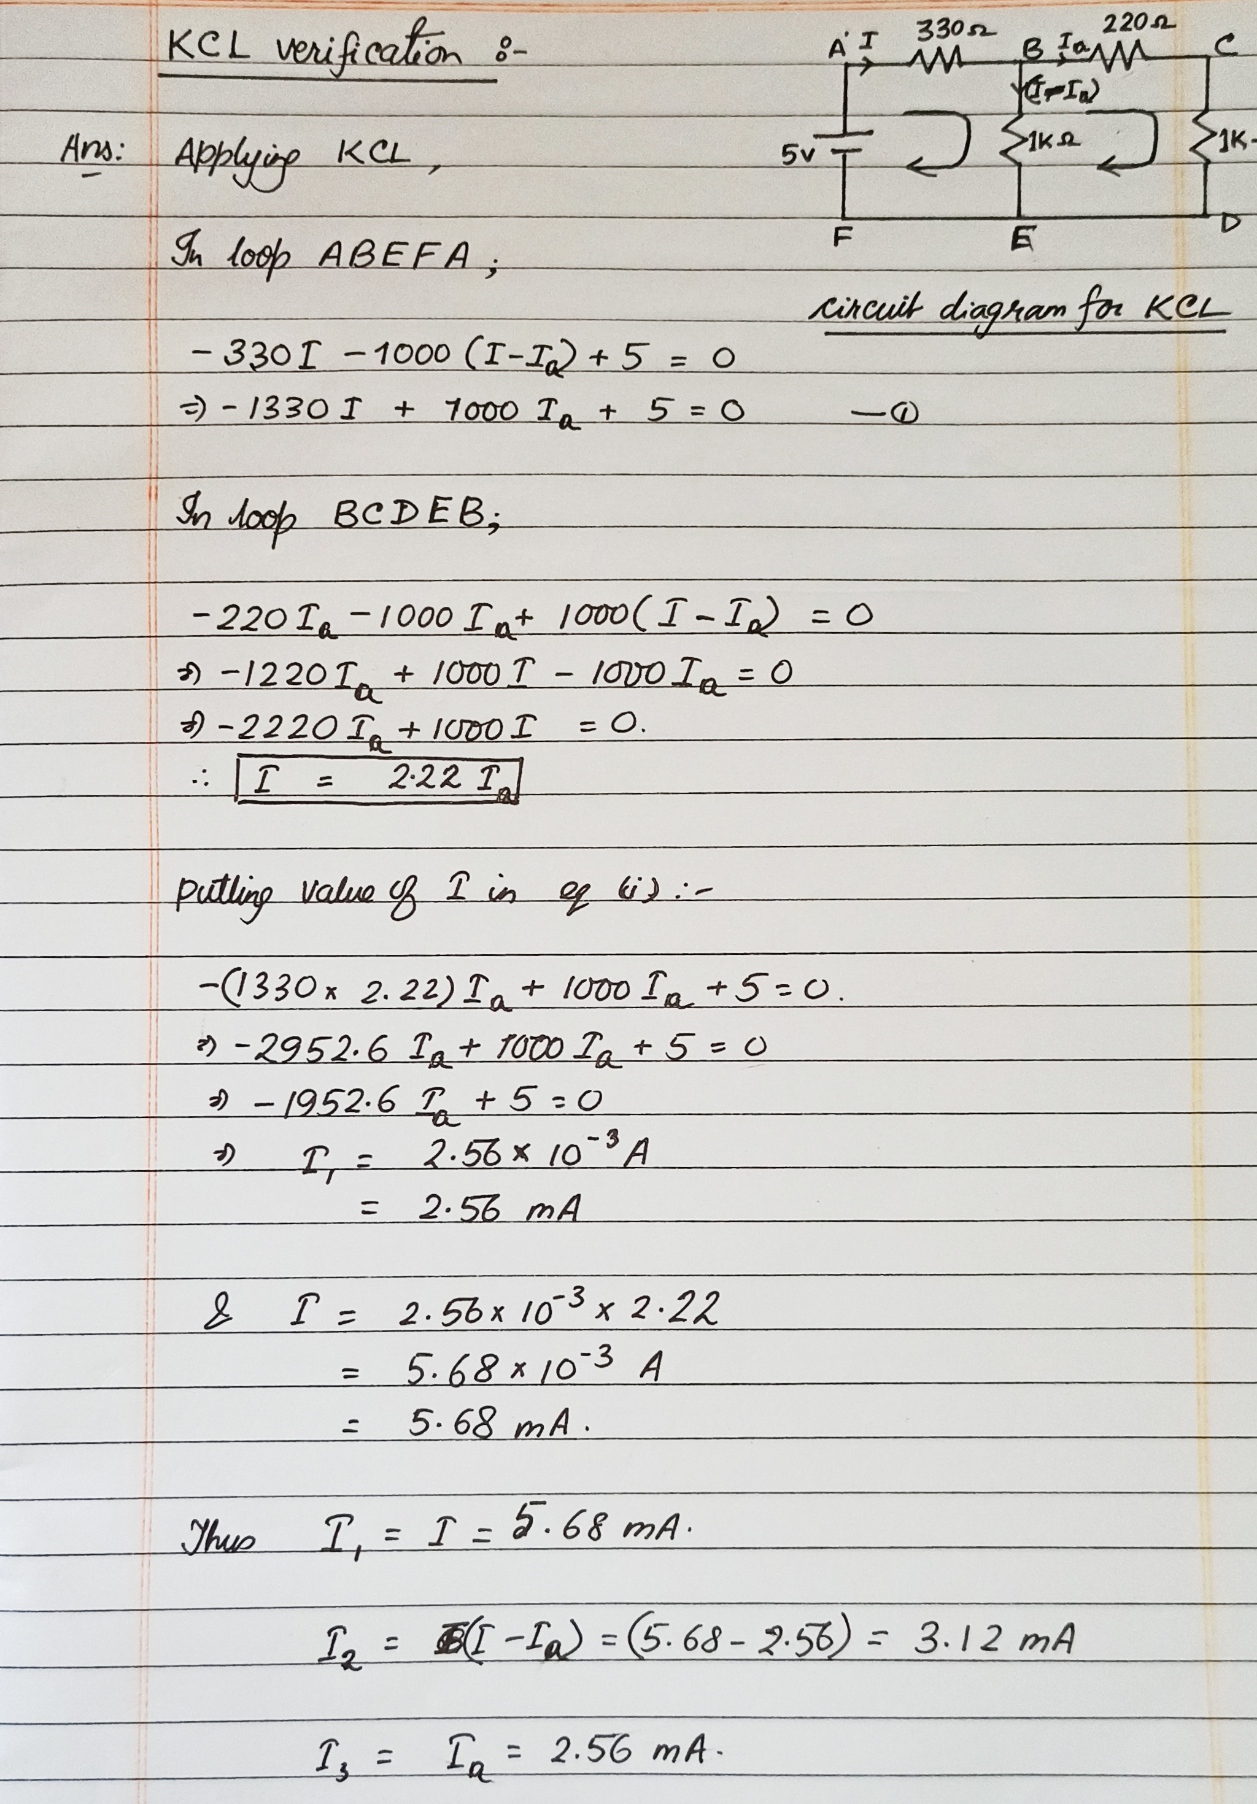 KCL verification :-
A I 330Ω B Ia 220Ω C
(I-Ia)
5V 1KΩ 1K
F E D
Circuit diagram for KCL
Ans: Applying KCL,
In loop ABEFA;
-330I - 1000 (I-Ia) + 5 = 0
⇒ -1330 I + 1000 Ia + 5 = 0 —①
In loop BCDEB;
-220 Ia - 1000 Ia + 1000 (I - Ia) = 0
⇒ -1220 Ia + 1000 I - 1000 Ia = 0
⇒ -2220 Ia + 1000 I = 0.
∴ I = 2.22 Ia
Putting value of I in eq (i) :-
-(1330 x 2.22) Ia + 1000 Ia + 5 = 0.
⇒ -2952.6 Ia + 1000 Ia + 5 = 0
⇒ -1952.6 Ia + 5 = 0
⇒ I₁ = 2.56 x 10⁻³ A
= 2.56 mA
& I = 2.56 x 10⁻³ x 2.22
= 5.68 x 10⁻³ A
= 5.68 mA.
Thus I₁ = I = 5.68 mA.
I₂ = (I - Ia) = (5.68 - 2.56) = 3.12 mA
I₃ = Ia = 2.56 mA.